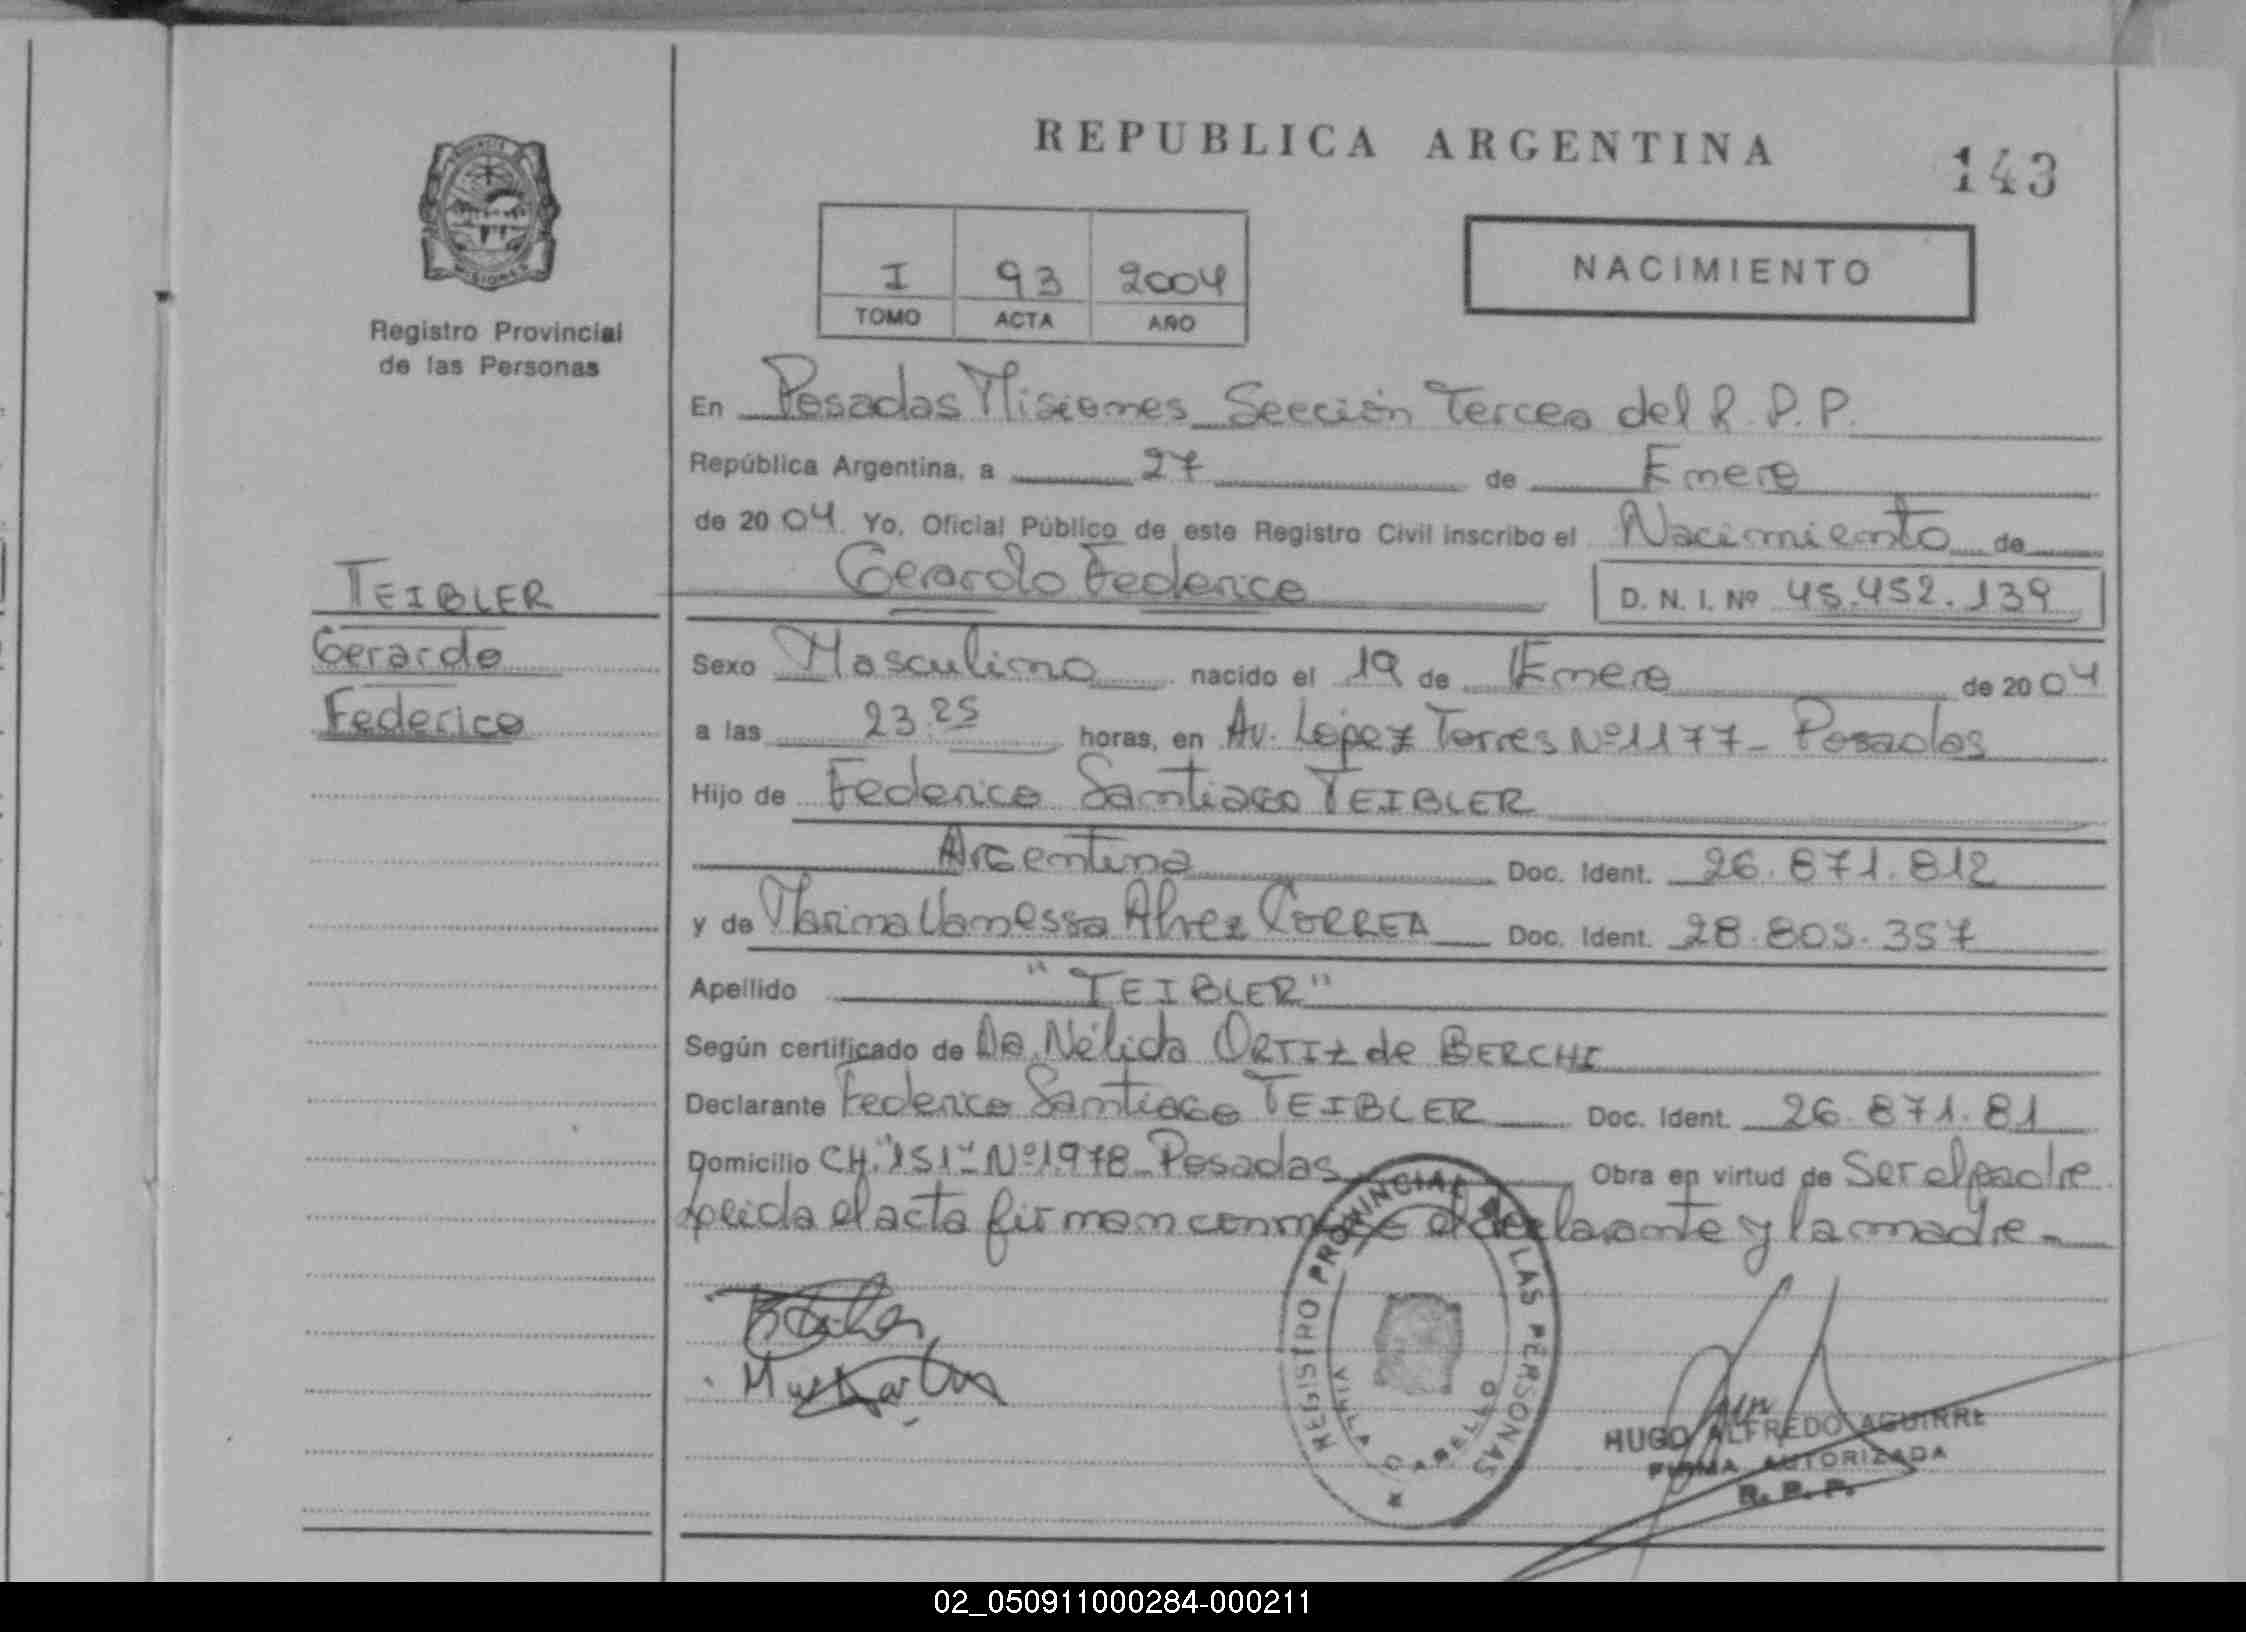 REPUBLICA ARGENTINA
143
I 93 2004
TOMO ACTA AÑO
NACIMIENTO
MISIONES
Registro Provincial
de las Personas
TEIBLER
Gerardo
Federico
En Posadas Misiones Sección Tercera del R.P.P.
República Argentina, a 27 de Enero
de 2004 Yo, Oficial Público de este Registro Civil inscribo el Nacimiento de
Gerardo Federico D. N. I. Nº 45.452.139
Sexo Masculino nacido el 19 de Enero de 2004
a las 23.25 horas, en Av. López Torres Nº 1177 - Posadas
Hijo de Federico Santiago TEIBLER
Argentina Doc. Ident. 26.871.812
y de Marina Vanessa Alvez CORREA Doc. Ident. 28.805.357
Apellido "TEIBLER"
Según certificado de Da. Nélida ORTIZ de BERCHI
Declarante Federico Santiago TEIBLER Doc. Ident. 26.871.81
Domicilio CH. "151" Nº 1978 Posadas Obra en virtud de Ser el padre
Leida el acta firman conmigo el declarante y la madre -
REGISTRO PROVINCIAL DE LAS PERSONAS
VILLA CABELLO
HUGO ALFREDO AGUIRRE
FIRMA AUTORIZADA
R. P. P.
02_050911000284-000211